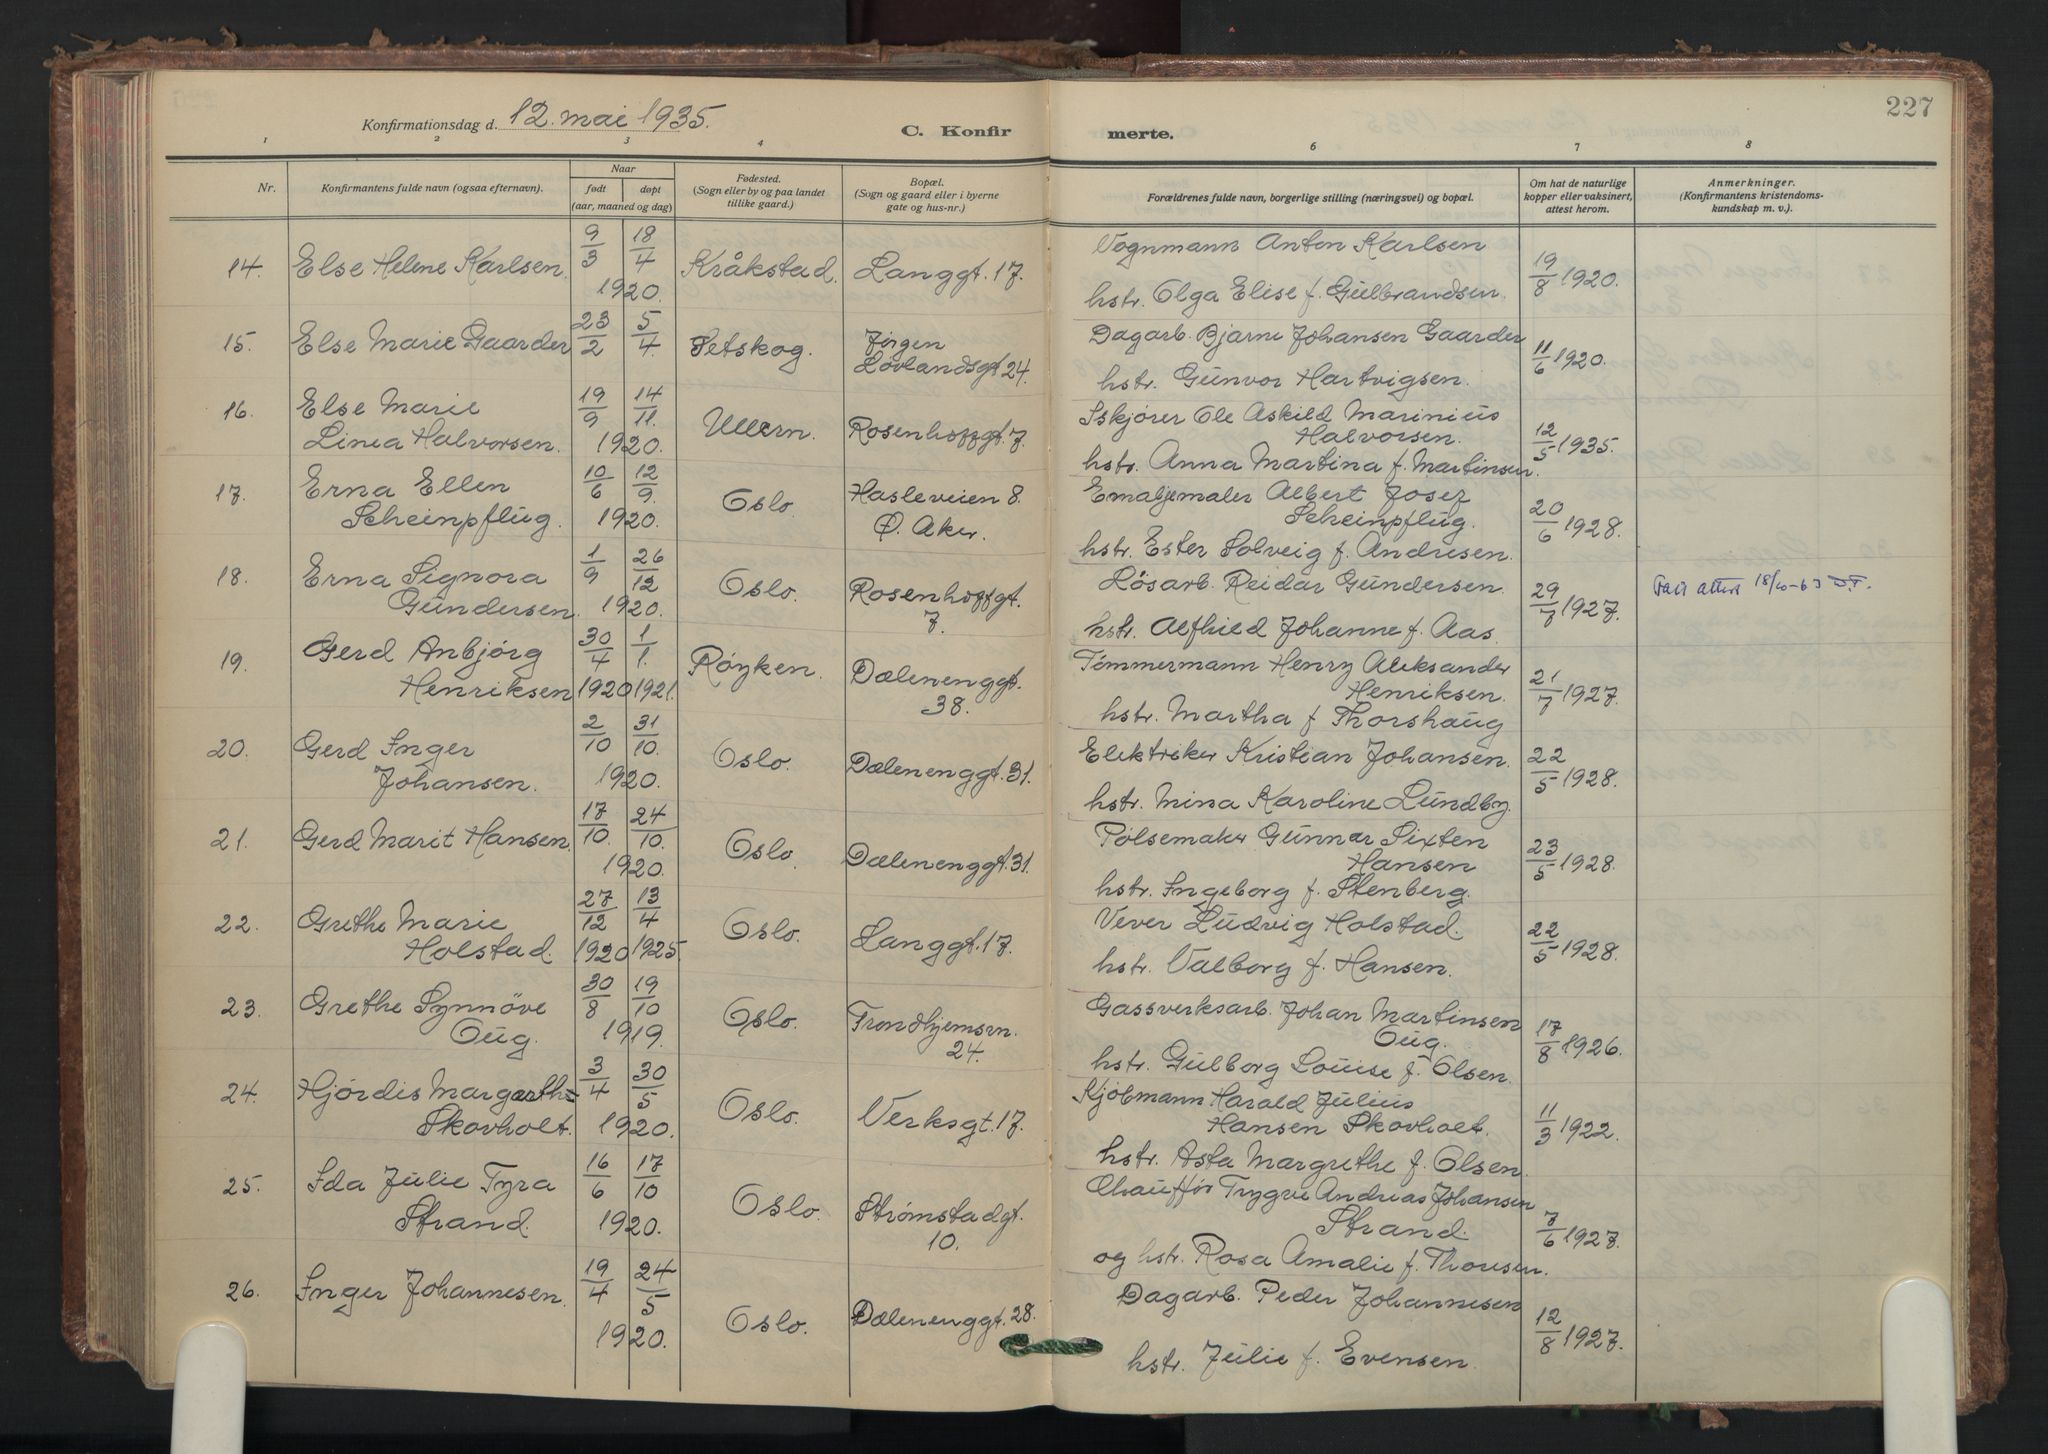 227
Konfirmationsdag d. 12. mai 1935.
C. Konfirmerte.
1 2 3 4 6 7 8
Nr.
Konfirmantens fulde navn (ogsaa efternavn).
Naar
født
døpt
(aar, maaned og dag)
Fødested.
(Sogn eller by og paa landet
tillike gaard.)
Bopæl.
(Sogn og gaard eller i byerne
gate og hus-nr.)
Forældrenes fulde navn, borgerlige stilling (næringsvei) og bopæl.
Om hat de naturlige
kopper eller vaksinert,
attest herom.
Anmerkninger.
(Konfirmantens kristendoms-
kundskap m. v.).
14. Else Helene Karlsen. 9/3 18/4 1920. Kråkstad. Langgt. 17.
Vognmann Anton Karlsen
hstr. Olga Elise f. Gulbrandsen. 19/8 1920.
15. Else Marie Gaarder 23/2 5/4. Setskog. Jørgen
Løvlandsgt 24.
Dagarb. Bjarne Johansen Gaarder
hstr. Gunvor Hartvigsen. 11/6 1920.
16. Else Marie
Linea Halvorsen. 19/9 14/11. 1920. Ullern. Rosenhoffgt. 7.
Iskjører Ole Askild Marinius
Halvorsen.
hstr. Anna Martina f. Martinsen. 12/5 1935.
17. Erna Ellen
Scheinpflug. 10/6 12/9. 1920. Oslo. Hasleveien 8.
Ø. Aker.
Emaljemaler Albert Josef
Scheinpflug.
hstr. Ester Solveig f. Andresen. 20/6 1928.
18. Erna Signora
Gundersen. 1/9 26/12 1920. Oslo. Rosenhoffgt.
7.
Løsarb. Reidar Gundersen.
hstr. Alfhild Johanne f. Aas. 29/7 1927. attest
19. Gerd Anbjørg
Henriksen 30/4 1920 1/1. 1921. Røyken. Dælenenggt.
38.
Tømmermann Henry Aleksander
Henriksen.
hstr. Martha f Thorshaug 21/7 1927.
20. Gerd Inger
Johansen. 2/10 31/10. 1920. Oslo. Dælenenggt. 31.
Elektriker Kristian Johansen.
hstr. Mina Karoline Lundby. 22/5 1928.
21. Gerd Marit Hansen. 17/10. 24/10. 1920. Oslo. Dælenenggt. 31.
Pølsemaker Gunnar Sixten
Hansen
hstr. Ingeborg f. Stenberg. 23/5 1928.
22. Grethe Marie
Holstad. 27/12 1920 13/4 1925. Oslo. Langgt. 17.
Vever Ludvig Holstad.
hstr. Valborg f. Hansen. 22/5 1928.
23. Grethe Synnöve
Oug. 30/8 19/10 1919. Oslo. Trondhjemsvn.
24.
Gassverksarb. Johan Martinsen
Oug.
hstr. Gulborg Louise f. Olsen. 17/8 1926.
24. Hjørdis Margrethe
Skovholt. 3/4 30/5 1920. Oslo. Verksgt. 17.
Kjøbmann Harald Julius
Hansen Skovholt.
hstr. Asta Margrethe f. Olsen. 11/3 1922.
25. Ida Julie Tyra
Strand. 16/6 17/10 1920. Oslo. Strømstadgt.
10.
Chauffør Trygve Andreas Johansen
Strand.
og hstr. Rosa Amalie f. Thoresen. 7/6 1927.
26. Inger Johannesen. 19/4 24/5 1920. Oslo. Dælenenggt. 28.
Dagarb. Peder Johannesen
hstr. Julie f. Evensen. 12/8 1927.